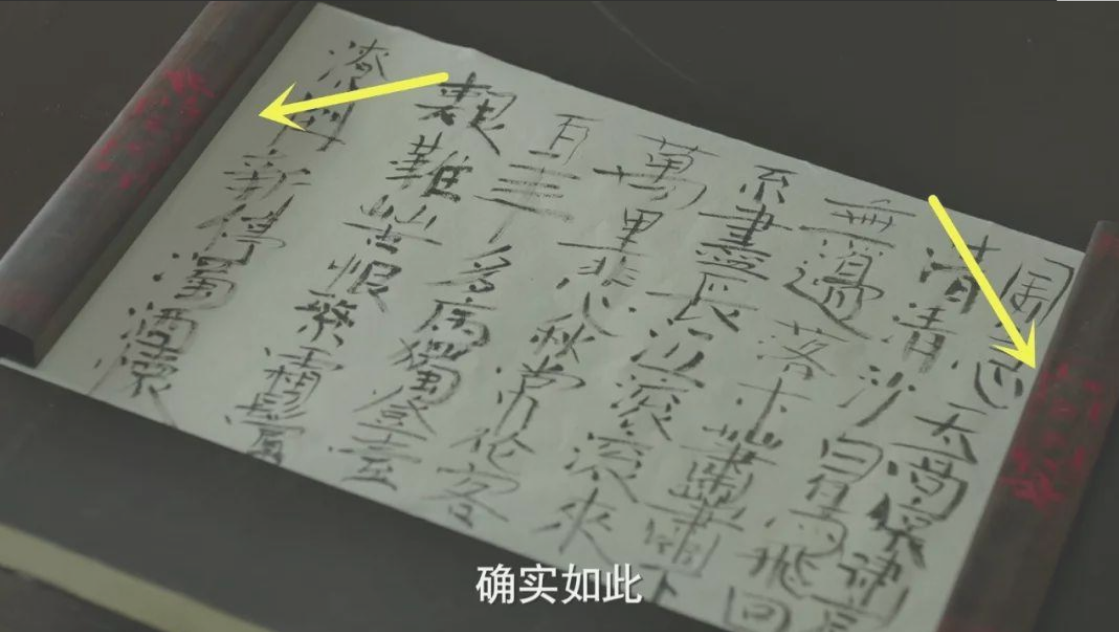 風急天高猿嘯
清清沙白鳥飛回
無邊落木蕭蕭下
不盡長江滾滾來
萬里悲秋常作客
百年多病獨登臺
艱難苦恨繁霜鬢
潦倒新停濁酒
确实如此